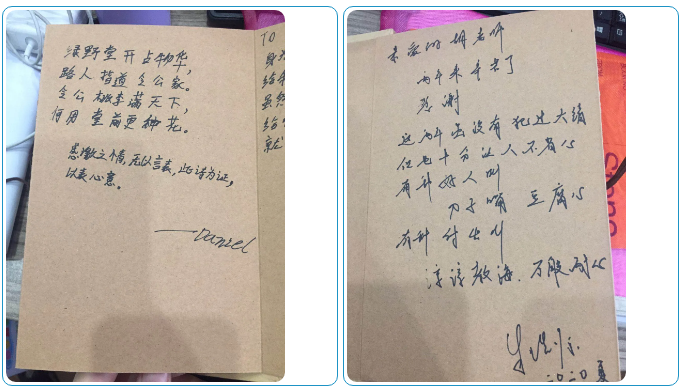 绿野堂开占物华，
路人指道令公家。
令公桃李满天下，
何用堂前更种花。
感激之情，无以言表，此诗为证，
以表心意。
——Daniel
TO
亲爱的胡老师
两年来辛苦了
感谢
这两年虽没有犯过大错
但也十分让人不省心
有种好人叫
刀子嘴 豆腐心
有种付出叫
谆谆教诲．万般耐心
二〇二〇 夏